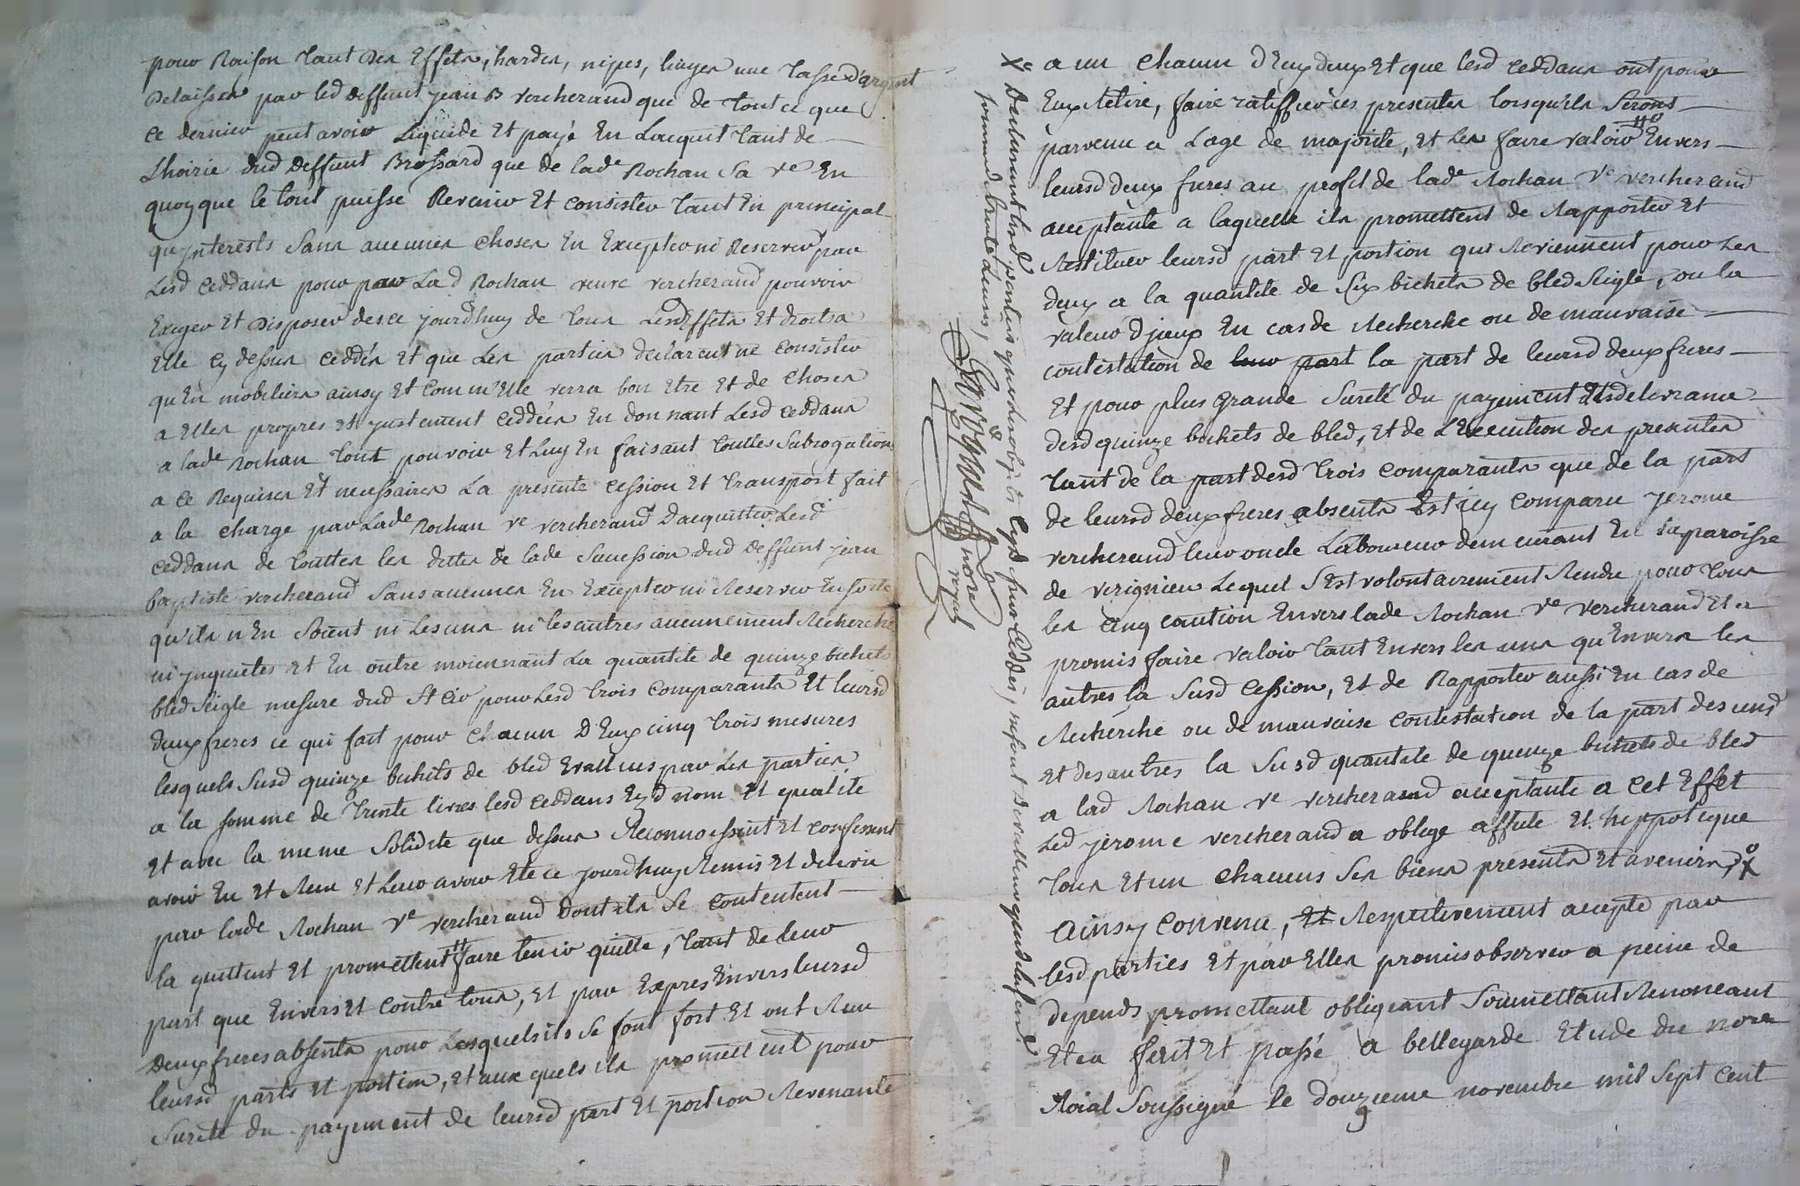 pour Raison tant Des Effets, hardes, nipes, linges une Tasse d'argent
Delaissés par led deffunt jean B vercherand que de tout ce que
ce dernier peut avoir Liquidé Et payé En Lacquit tant de
Lhoirie dud Deffunt Brossard que de lade Rochan Sa ve En
quoy que le tout puisse Revenir Et consister tant En principal
qu'jnterests Sans aucunes choses En Excepter ni Reserver par
Lesd ceddans pour par La d Rochan veuve vercherand pouvoir
Exiger Et Disposer des ce jourd'huy de tous Lesd Effets Et droits a
Elle cy dessus ceddés Et que Les parties declarent ne consister
qu'En mobiliers ainsy Et comm'Elle verra bon Etre Et de choses
a Elles propres Et justement ceddées En donnant Lesd ceddans
a lade Rochan tout pouvoir Et Luy En faisant toutes Subrogations
a ce Requises Et necessaires La presente cession Et transport fait
a la charge par Lade Rochan ve vercherand D'acquitter Lesd
ceddans de touttes les dettes de lade Succession dud deffunt jean
baptiste vercherand Sans aucunes En Excepter ni Reserver En sorte
qu'ils n'En Soient ni Les uns ni les autres aucunement Recherchés
ni jnquietés Et En outre moiennant La quantité de quinze bichets
bled Seigle mesure dud St Cir pour Lesd trois comparants Et leursd
deux freres ce qui fait pour chacun D'Eux cinq trois mesures
lesquels Susd quinze bichets de bled Evallués par Les parties
a la somme de trente livres lesd ceddans Esd nom Et qualité
Et avec la meme Solidité que dessus Reconnoissent Et confessent
avoir Eu Et Receu Et Leur avoir Eté ce jourd'huy Remis Et delivré
par lade Rochan ve vercherand Dont ils Se contentent
la quittent Et promettent faire tenir quitte, tant de leur
part que Envers Et contre tous, Et par Exprès Envers leursd
Deux freres absents pour Lesquels ils Se font fort Et ont Receu
leursd parts Et portion, Et aux quels ils promettent pour
Sureté du payement de leursd part Et portion Revenante
a un chacun d'Eux deux Et que lesd ceddans ont pour
Eux Retiré, faire ratiffier ces presentes lorsqu'ils Seront
parvenu a Lage de majorité, Et Les faire valoir Envers
leursd deux freres au profit de lade Rochan Ve vercherand
acceptante a laquelle ils promettent de Rapporter Et
Restituer leursd part Et portion qui Reviennent pour Les
deux a la quantité de Six bichets de bled Seigle, ou la
valeur d'jceux En cas de Recherche ou de mauvaise
contestation de leur part la part de leursd deux freres
Et pour plus grande Sureté du payement Et delivrance
desd quinze bichets de bled, Et de L'Execution des presentes
tant de la part desd trois comparants que de la part
de leursd deux freres absents Est icy comparu jerome
vercherand leur oncle Laboureur demeurant En la paroisse
de verignieu Lequel S'Est volontairement Rendu pour tous
les cinq caution Envers lade Rochan Ve vercherand Et a
promis faire valoir tant Envers les uns qu'Envers les
autres la Susd cession, Et de Rapporter aussi En cas de
Recherche ou de mauvaise contestation de la part des uns
Et des autres la Susd quantité de quinze bichets de bled
a lad Rochan Ve vercherand acceptante a cet Effet
Led jerome vercherand a obligé affecté Et hippotequé
tous Et un chacuns Ses biens presents Et avenirs
Ainsy convenu, Et Respectivement accepté par
lesd parties Et par Elles promis observer a peine de
depends promettant obligeant Soumettant Renonceant
Et ca fait Et passé a bellegarde Etude du nore
Roial Soussigné le douzieme novembre mil Sept cent
Declarant lesd parties que les objets cy dessus Ceddés, ne sont de valleur que de la
somme de trente livres,
nore
royal